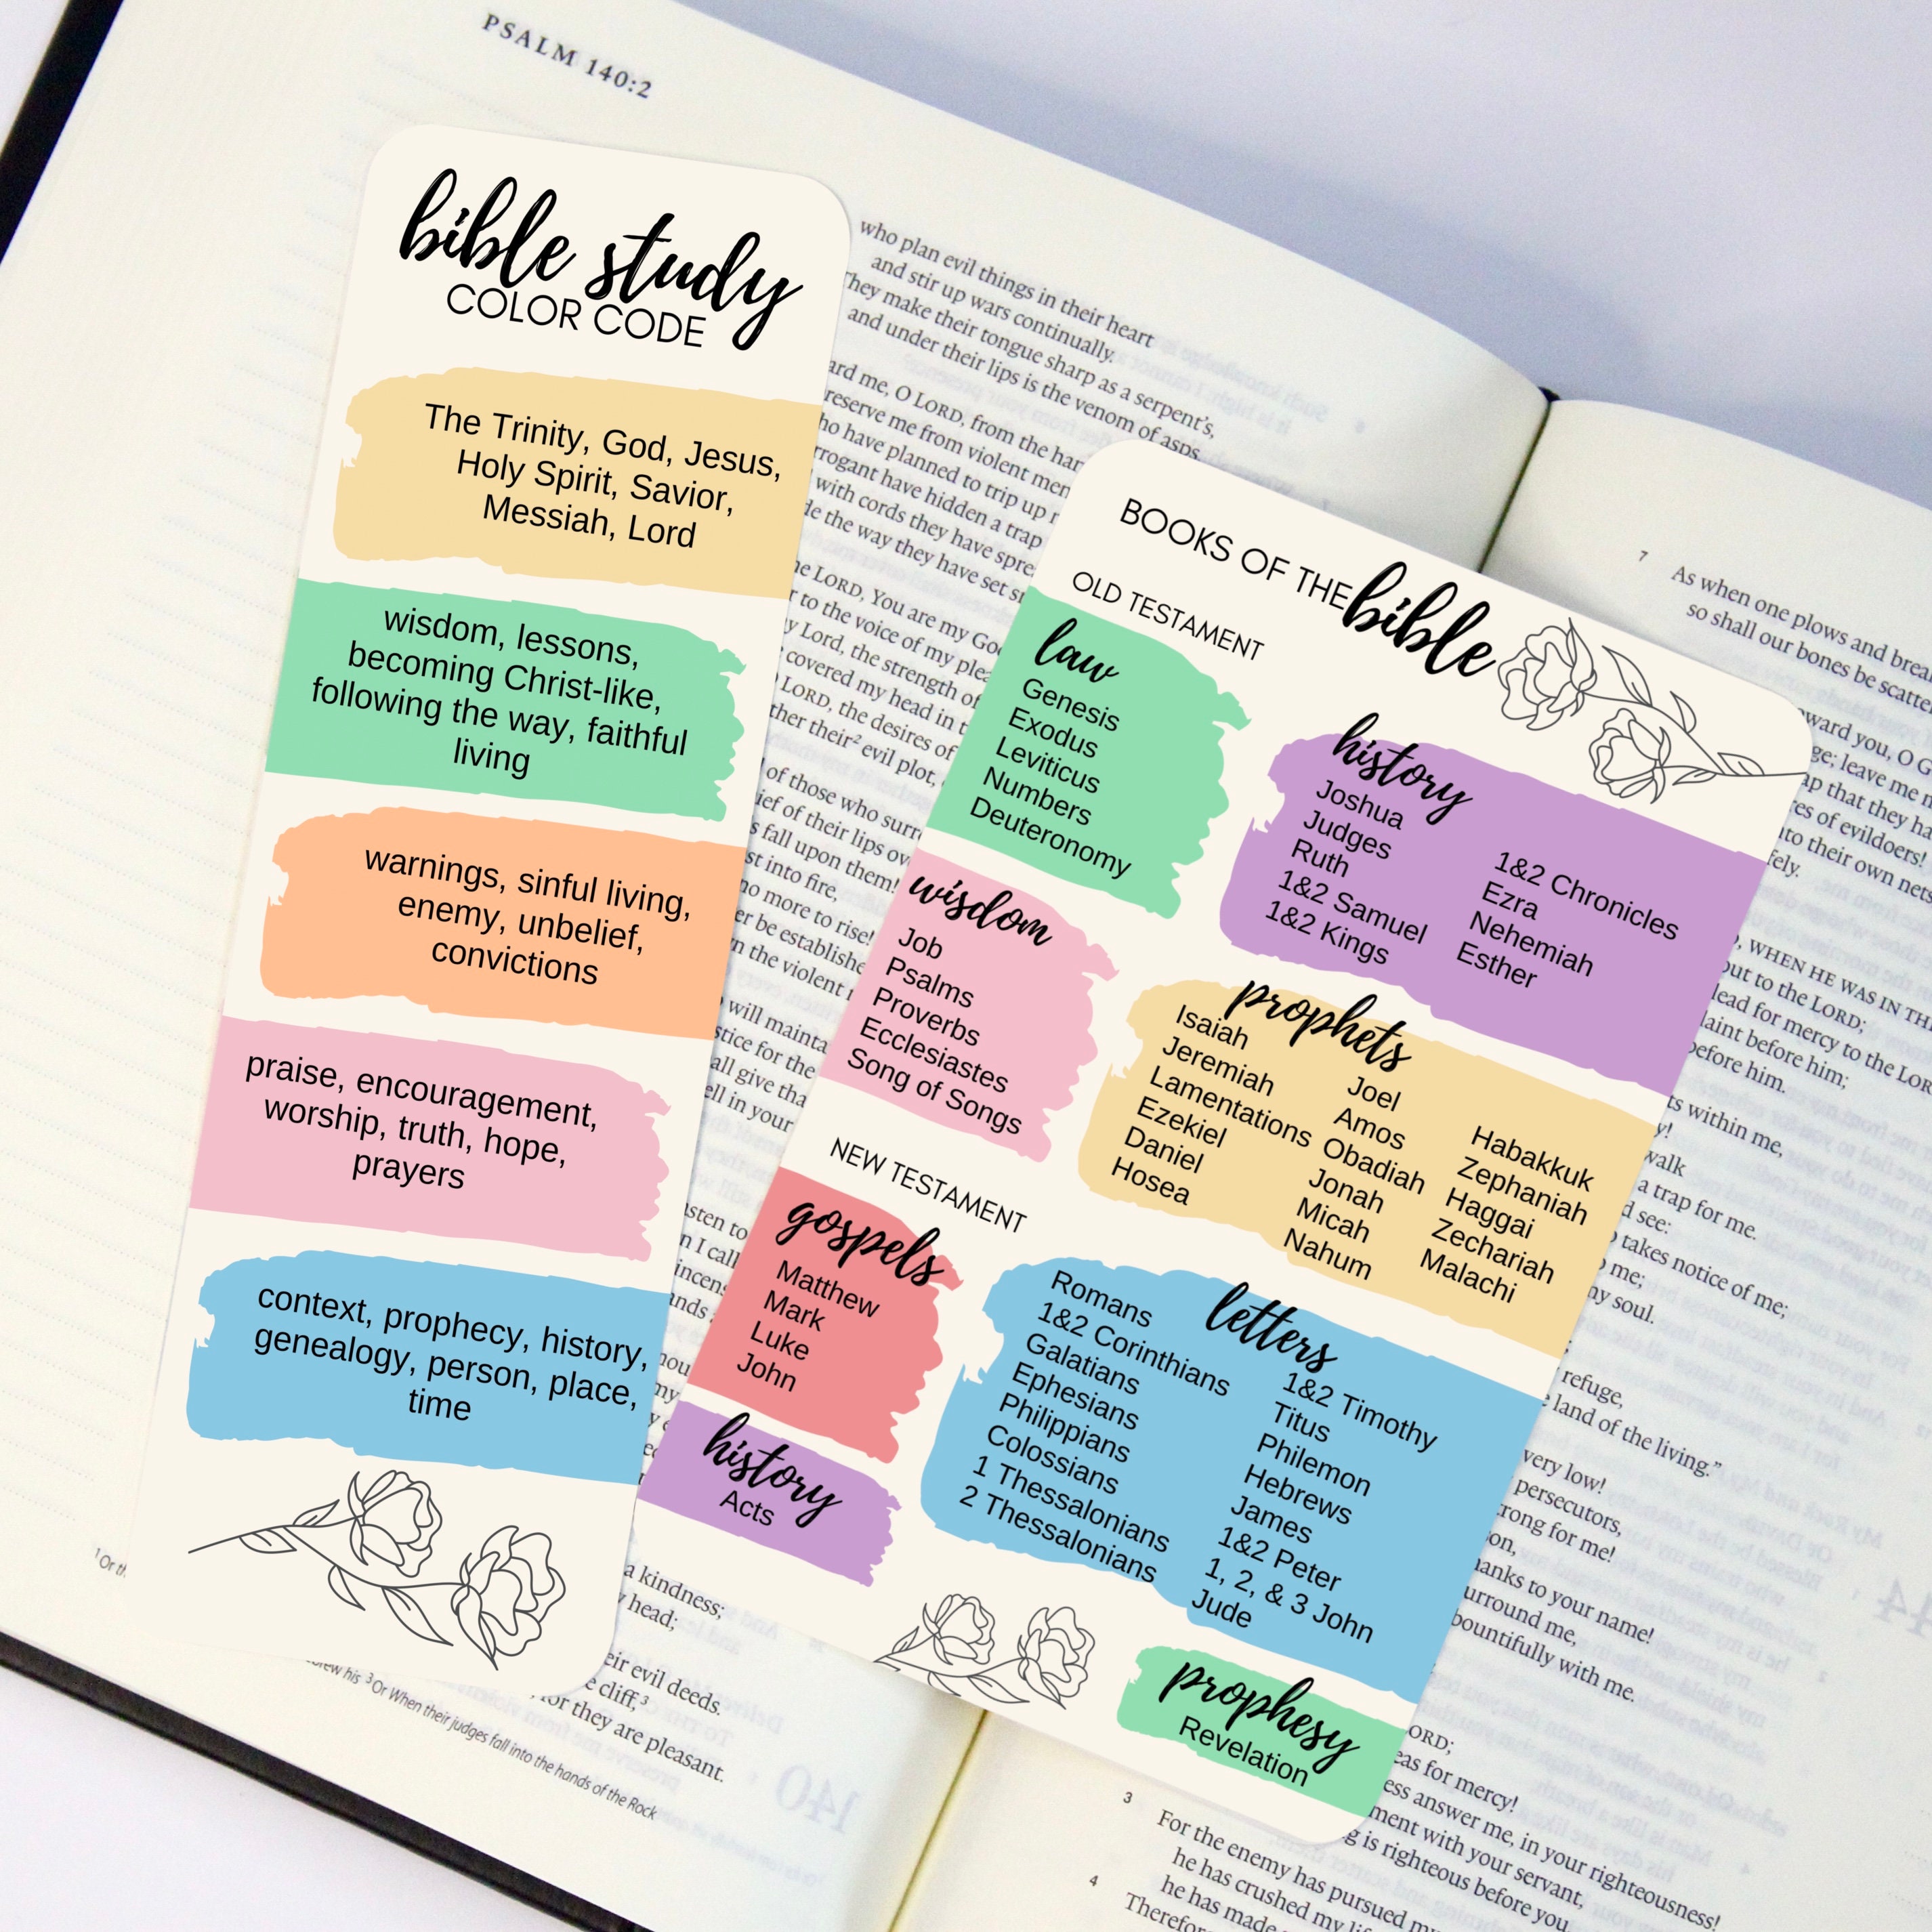 PSALM 140:2
bible study
COLOR CODE
The Trinity, God, Jesus,
Holy Spirit, Savior,
Messiah, Lord
wisdom, lessons,
becoming Christ-like,
following the way, faithful
living
warnings, sinful living,
enemy, unbelief,
convictions
praise, encouragement,
worship, truth, hope,
prayers
context, prophecy, history,
genealogy, person, place,
time
BOOKS OF THE bible
OLD TESTAMENT
law
Genesis
Exodus
Leviticus
Numbers
Deuteronomy
history
Joshua
Judges
Ruth
1&2 Samuel
1&2 Kings
1&2 Chronicles
Ezra
Nehemiah
Esther
wisdom
Job
Psalms
Proverbs
Ecclesiastes
Song of Songs
prophets
Isaiah
Jeremiah
Lamentations
Ezekiel
Daniel
Hosea
Joel
Amos
Obadiah
Jonah
Micah
Nahum
Habakkuk
Zephaniah
Haggai
Zechariah
Malachi
NEW TESTAMENT
gospels
Matthew
Mark
Luke
John
history
Acts
letters
Romans
1&2 Corinthians
Galatians
Ephesians
Philippians
Colossians
1 Thessalonians
2 Thessalonians
1&2 Timothy
Titus
Philemon
Hebrews
James
1&2 Peter
1, 2, & 3 John
Jude
prophesy
Revelation
who plan evil things in their heart
and stir up wars continually.
They make their tongue sharp as a serpent's,
and under their lips is the venom of asps.
me, O LORD, from the
preserve me from violent men
who have planned to trip up
arrogant have hidden a trap
with cords they have
the way they have set
LORD, You are my
to the voice of my
Lord, the strength of
covered my head in
LORD, the desires of
their² evil plot,
of those who
of their lips
fall upon them!
into fire,
no more to rise!
be
the violent
will
for the
give
in your
to
I call
a kindness;
head;
evil deeds.
cliff;³
for they are pleasant.
¹Or
his ³Or When their judges fall into the hands of the Rock
7 As when one plows and
so shall our bones be
you, O
leave me
that they
of evildoers!
into their own nets,
WHEN HE WAS IN
out to the LORD;
plead for mercy to the
before him;
before him.
within me,
walk
a trap for me.
see:
takes notice of me;
me;
my soul.
refuge,
land of the living.”
very low!
persecutors,
for me!
thanks to your name!
surround me,
bountifully with me.
for mercy!
answer me, in your righteousness!
with your servant,
is righteous before you.
3 For the enemy has pursued my
he has crushed my
he has made
4 Therefore